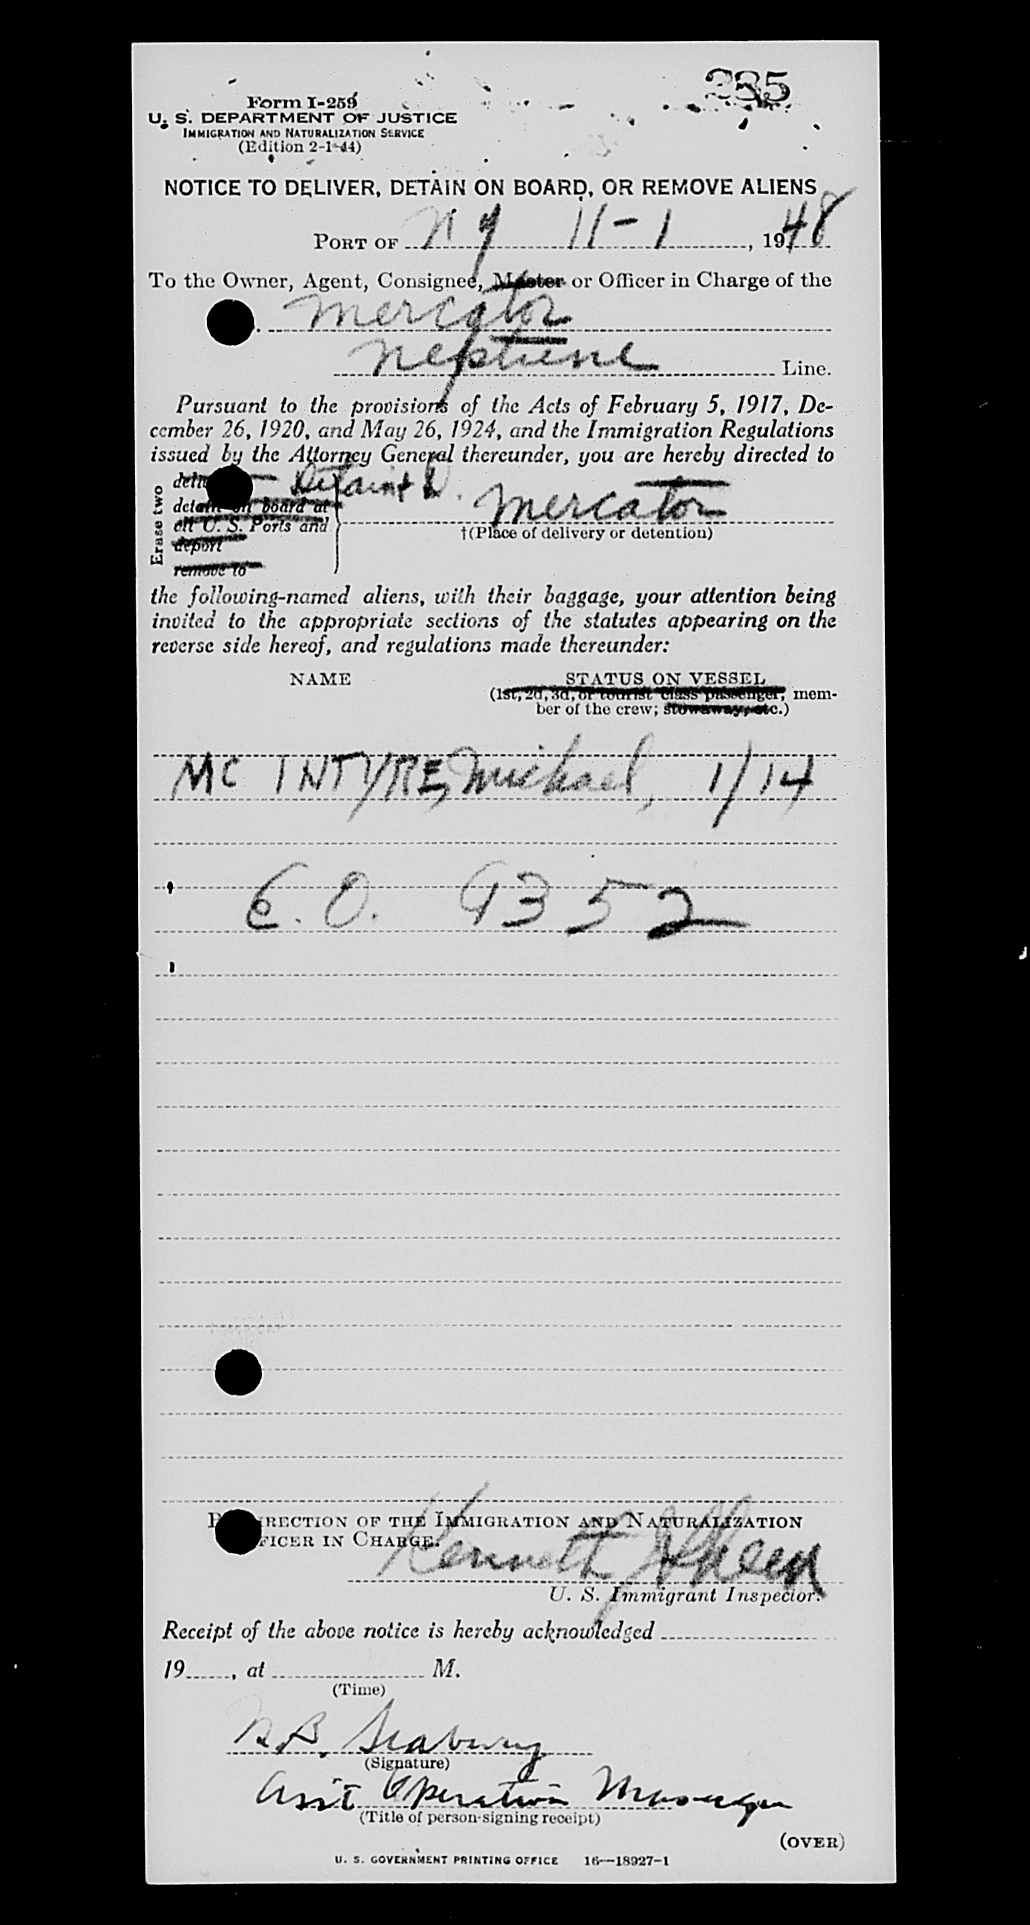 235
Form I-259
U. S. DEPARTMENT OF JUSTICE
IMMIGRATION AND NATURALIZATION SERVICE
(Edition 2-1-44)
NOTICE TO DELIVER, DETAIN ON BOARD, OR REMOVE ALIENS
PORT OF N Y 11-1, 1948
To the Owner, Agent, Consignee, Master or Officer in Charge of the
Mercator
Neptune Line.
Pursuant to the provisions of the Acts of February 5, 1917, De-
cember 26, 1920, and May 26, 1924, and the Immigration Regulations
issued by the Attorney General thereunder, you are hereby directed to
Erase two
detain on board at
all U. S. Ports and
deport
remove to
Mercator
†(Place of delivery or detention)
the following-named aliens, with their baggage, your attention being
invited to the appropriate sections of the statutes appearing on the
reverse side hereof, and regulations made thereunder:
NAME STATUS ON VESSEL
(1st, 2d, 3d, or tourist class passenger, mem-
ber of the crew; stowaway, etc.)
MC INTYRE, Michael, 1/14
E.O. 9352
DIRECTION OF THE IMMIGRATION AND NATURALIZATION
OFFICER IN CHARGE.
Kenneth J
U. S. Immigrant Inspector.
Receipt of the above notice is hereby acknowledged
19 , at M.
(Time)
B. Seabury
(Signature)
Ass't Operation Manager
(Title of person signing receipt)
(OVER)
U. S. GOVERNMENT PRINTING OFFICE 16—18927-1